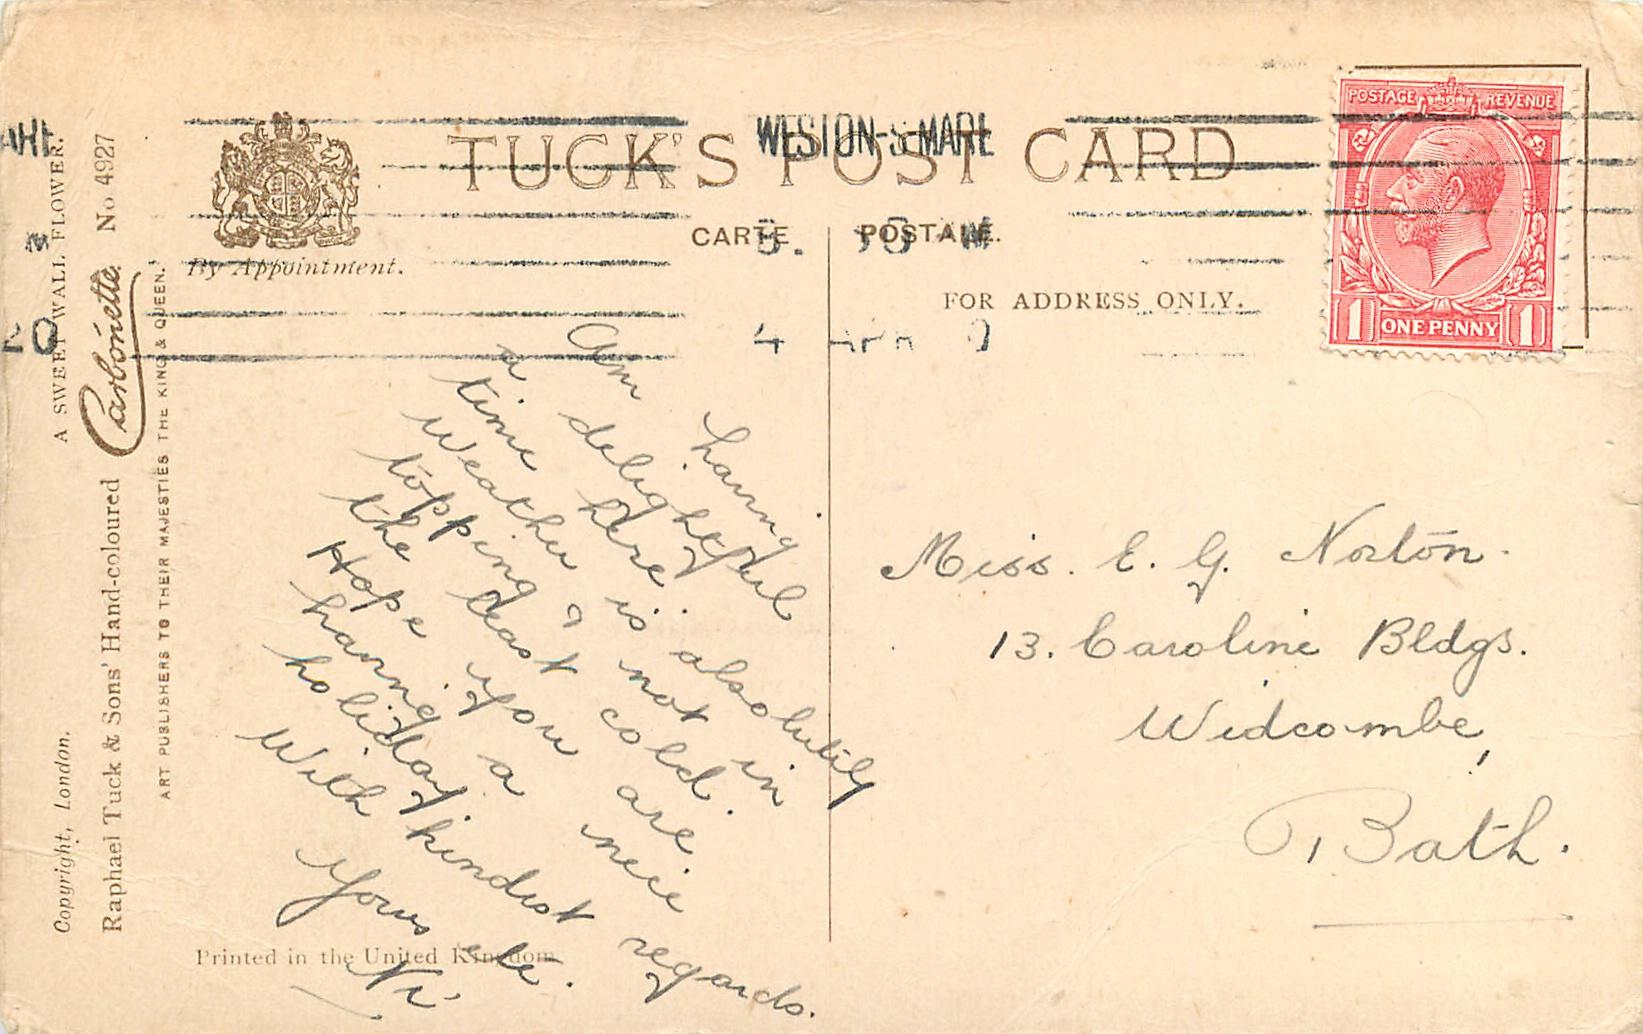 TUCK'S POST CARD
WESTON-S-MARE
CARTE POSTALE.
By Appointment.
FOR ADDRESS ONLY.
4 APR
20
POSTAGE REVENUE
1 ONE PENNY 1
A SWEET WALL FLOWER.
Carbonette No 4927
Copyright, London.
Raphael Tuck & Sons' Hand-coloured
ART PUBLISHERS TO THEIR MAJESTIES THE KING & QUEEN.
Am having
a delightful
time here is absolutely
Weather
topping & not in
the least cold.
Hope you are
having a nice
holiday.
With kindest regards.
Yours
Printed in the United Kingdom.
Miss. E. G. Norton.
13. Caroline Bldgs.
Widcombe,
Bath.